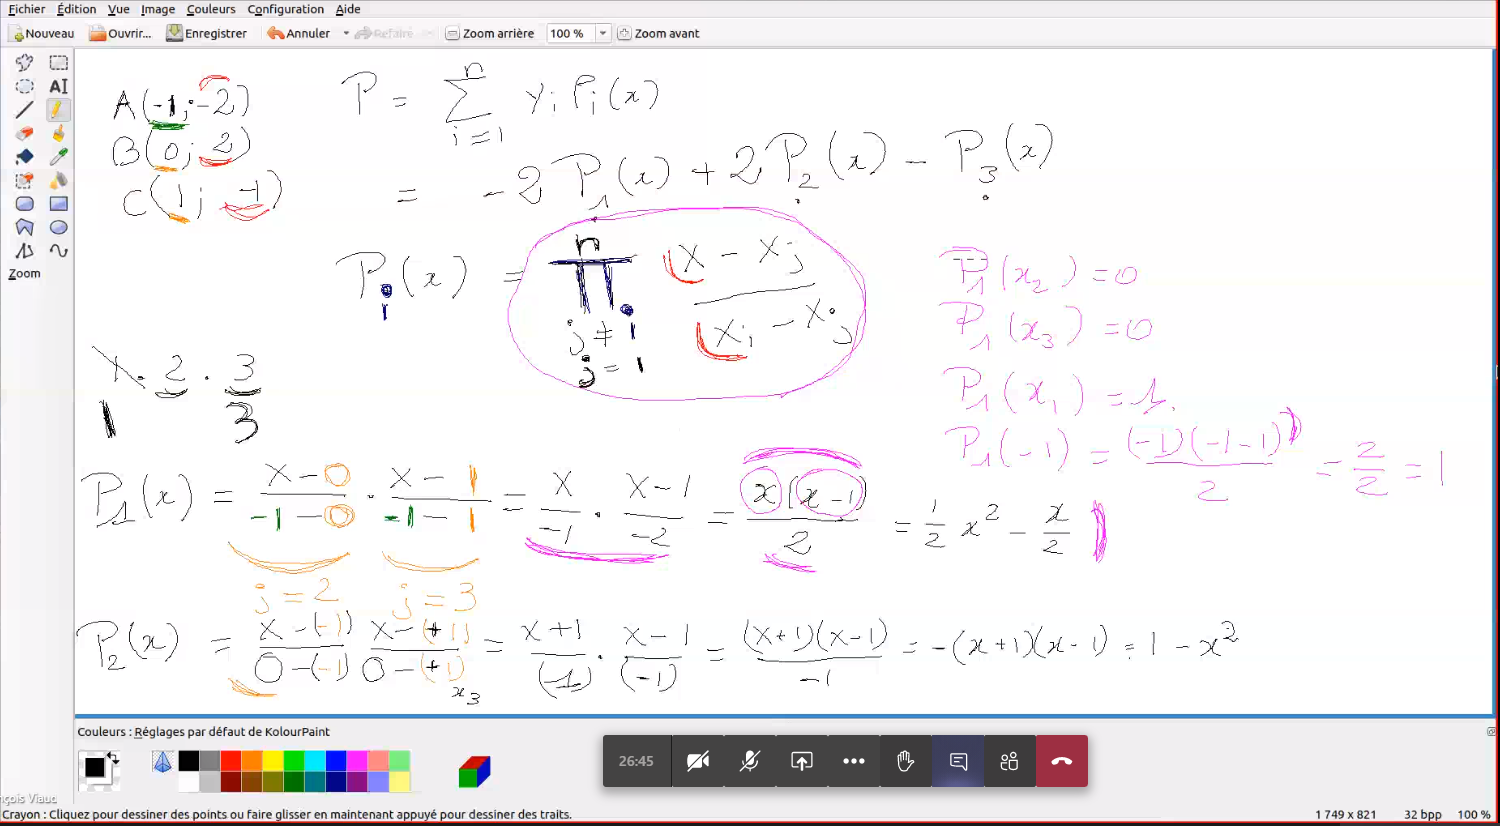 Fichier Édition Vue Image Couleurs Configuration Aide
Nouveau Ouvrir... Enregistrer Annuler Refaire Zoom arrière 100 % Zoom avant
Zoom
A(-1; -2)
B(0; 2)
C(1; -1)
P = Σ_{i=1}^{n} y_i P_i(x)
= -2 P_1(x) + 2 P_2(x) - P_3(x)
P_i(x) = ∏_{j≠i, j=1}^{n} (x - x_j)/(x_i - x_j)
P_1(x_2) = 0
P_1(x_3) = 0
P_1(x_1) = 1.
P_1(-1) = (-1)(-1-1)/2 = 2/2 = 1
1 · 2 · 3
1 3
P_1(x) = (x-0)/(-1-0) · (x-1)/(-1-1) = x/-1 · (x-1)/-2 = x(x-1)/2 = 1/2 x² - x/2
j = 2 j = 3
P_2(x) = (x-(-1))/(0-(-1)) (x-(+1))/(0-(+1)) = (x+1)/(-1) · (x-1)/(-1) = (x+1)(x-1)/-1 = -(x+1)(x-1) = 1 - x²
x_3
Couleurs : Réglages par défaut de KolourPaint
26:45
nçois Viaud
Crayon : Cliquez pour dessiner des points ou faire glisser en maintenant appuyé pour dessiner des traits. 1 749 x 821 32 bpp 100 %